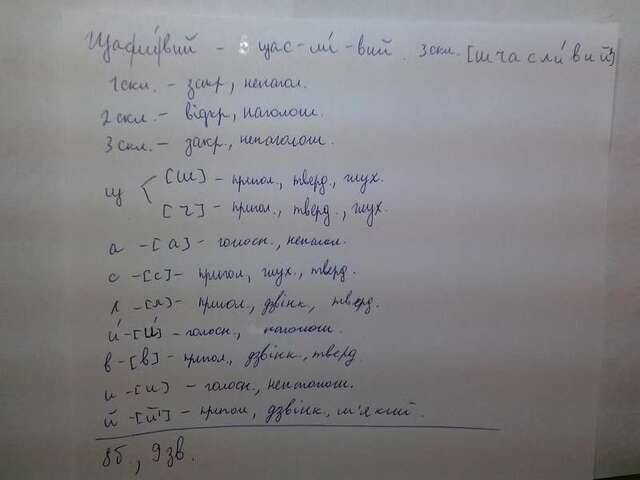 Щасли́вий - щас-ли́-вий. 3 скл. [шчасли́вий']
1 скл. - закр, непагол.
2 скл. - відкр, наголош.
3 скл. - закр., ненаголош.
щ [ш] - пригол., тверд., глух.
[ч] - пригол., тверд., глух.
а - [а] - голосн., ненагол.
с - [с] - пригол, глух., тверд.
л - [л] - пригол., дзвінк., тверд.
и́ - [и́] - голосн., наголош.
в - [в] - пригол., дзвінк., тверд.
и - [и] - голосн., ненаголош.
й - [й'] - пригол, дзвінк, м'який.
8б., 9зв.